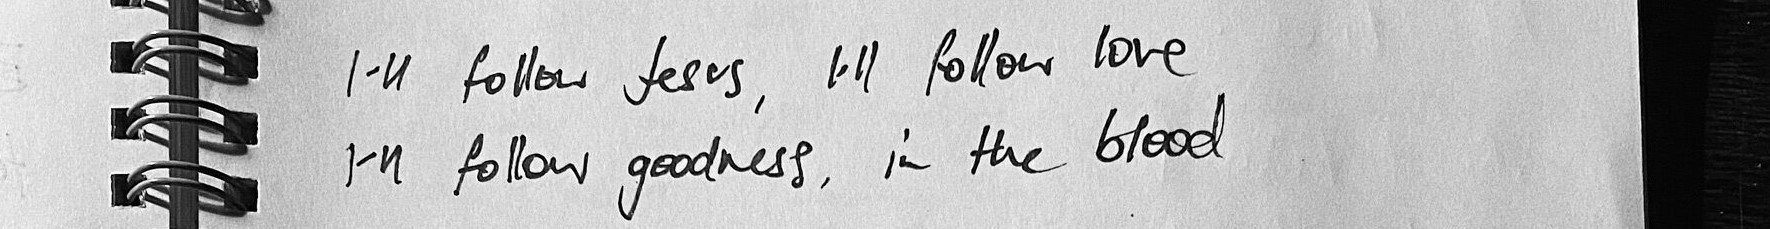 I'll follow Jesus, I'll follow love
I'll follow goodness, in the blood